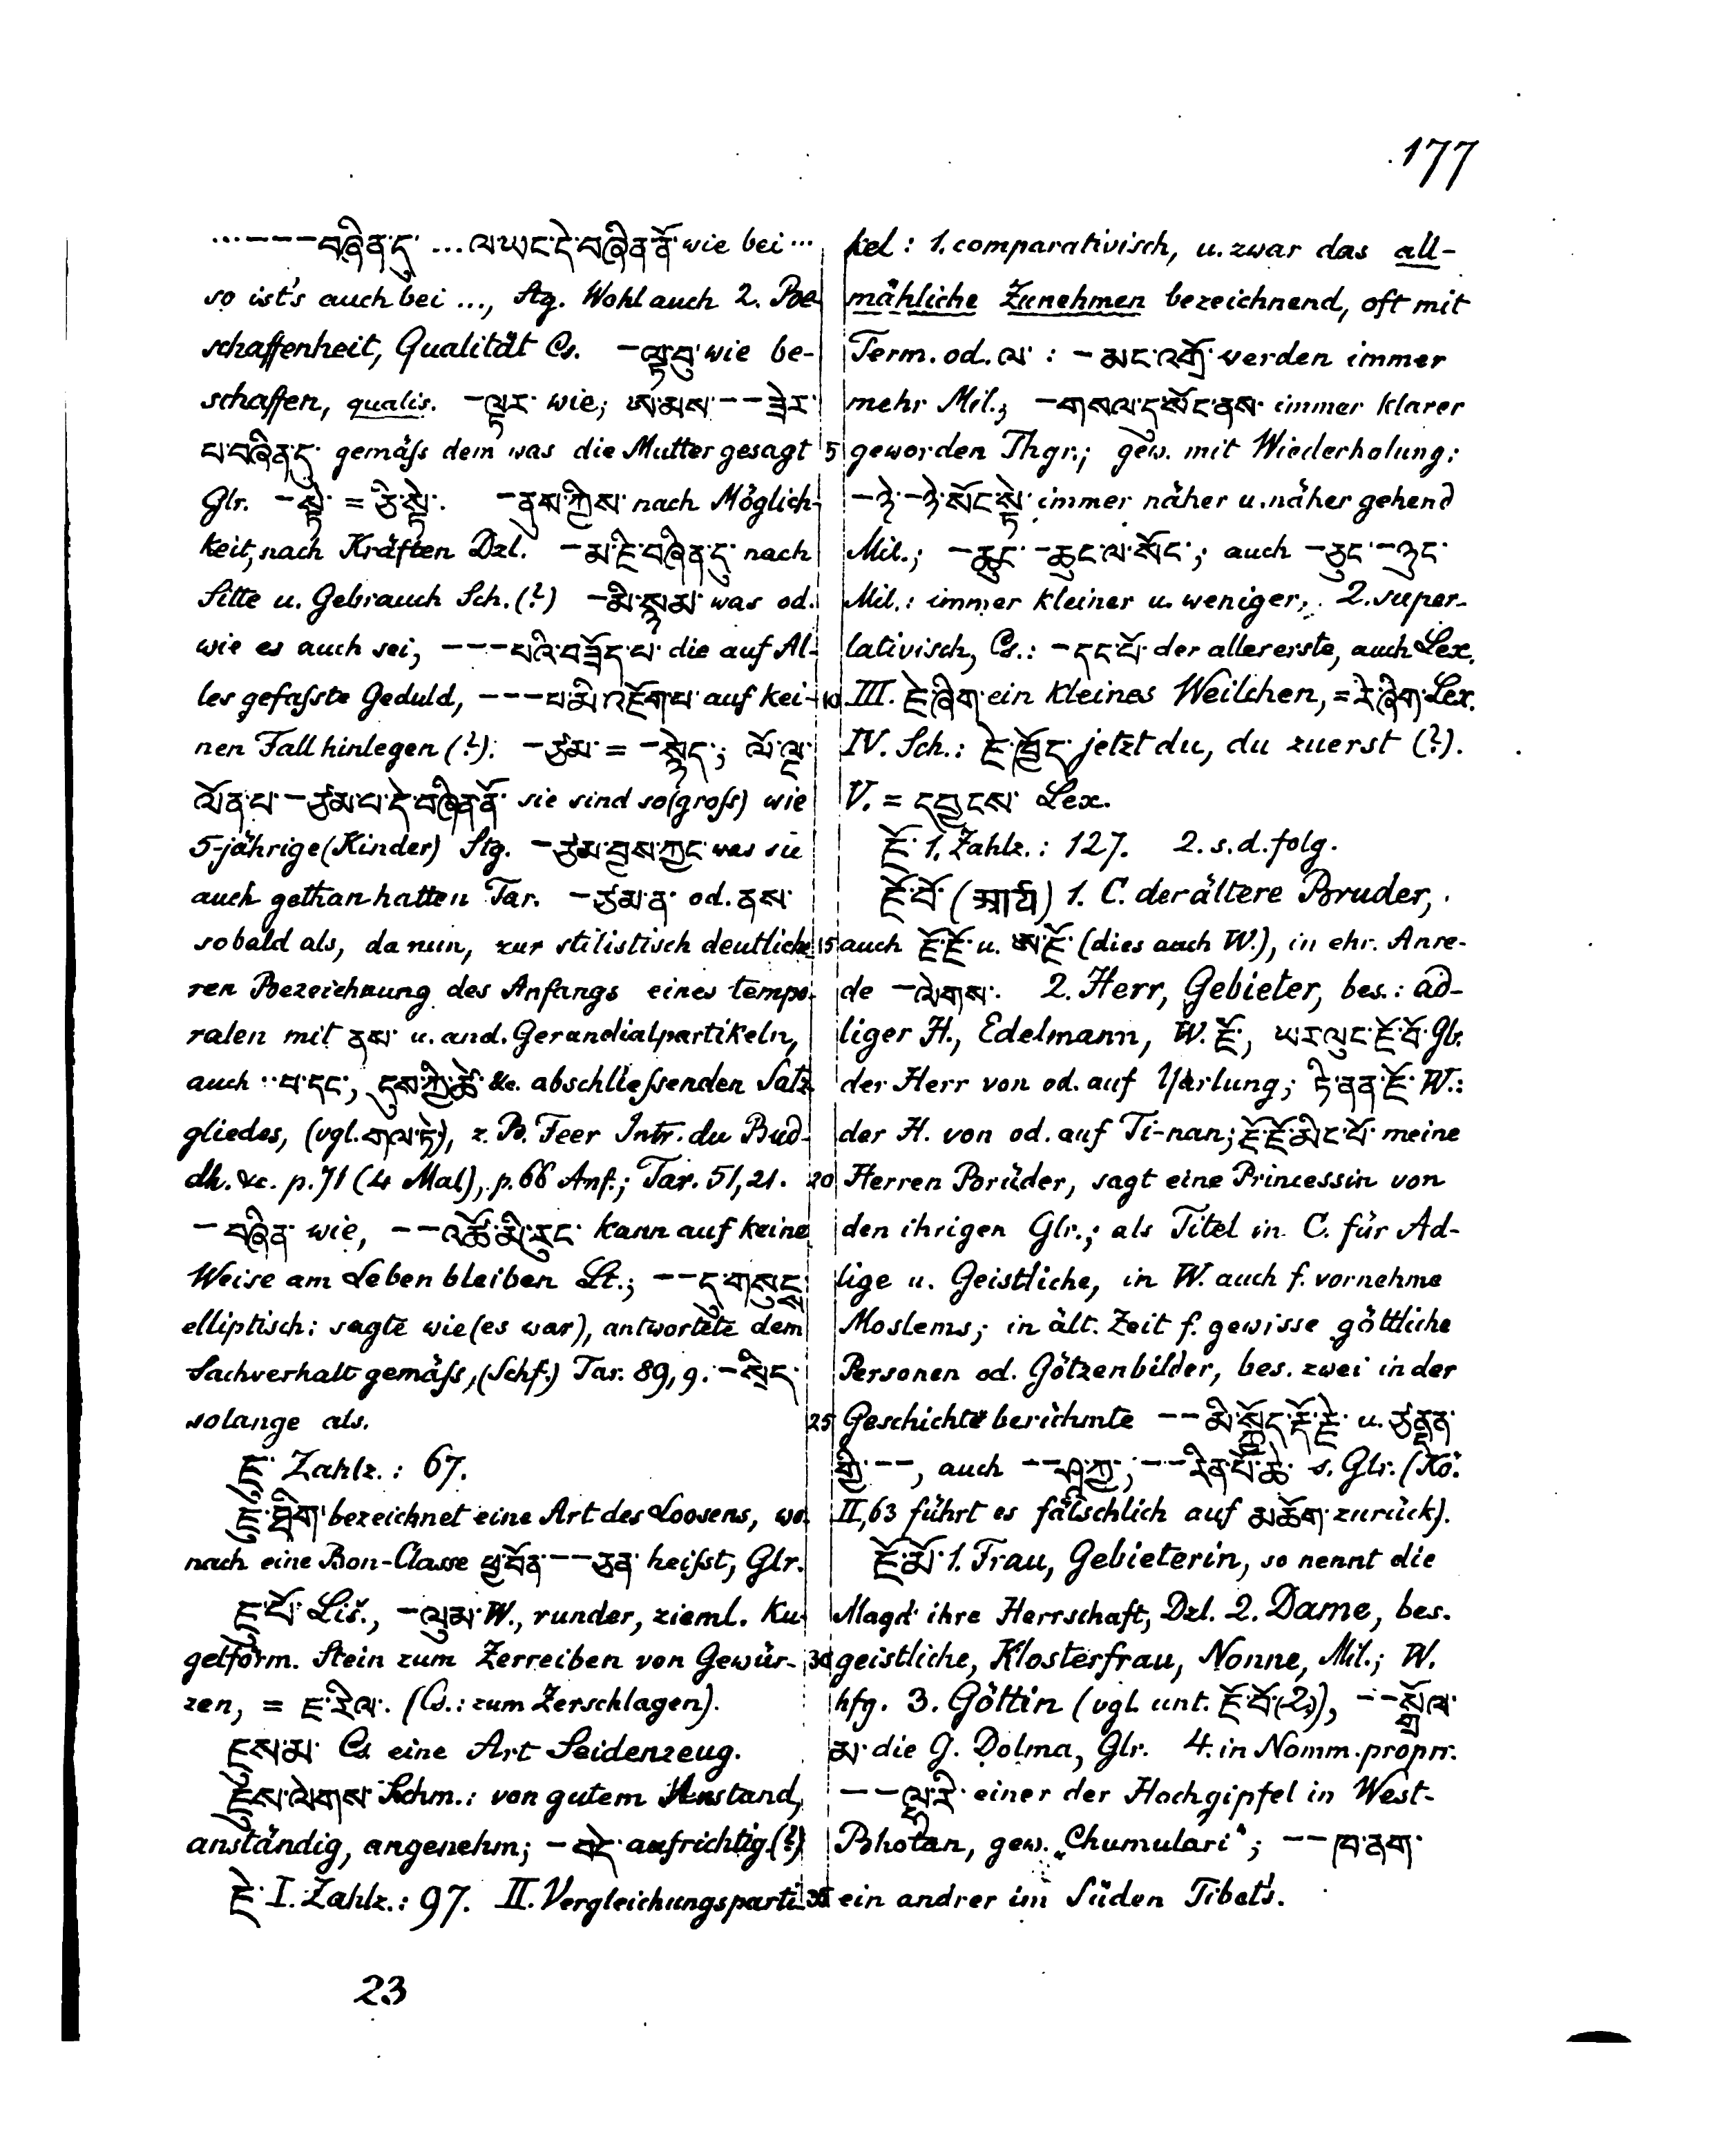 177
...----བཞིན་དུ་ ...ལ་ཡང་དེ་བཞིན་ནོ་ wie bei ...
so ist's auch bei ..., Stg. Wohl auch 2. Be-
schaffenheit, Qualität Cs. -ལྟ་བུ་ wie be-
schaffen, qualis. -ལྟར་ wie; ཨ་མས་--ཟེར་
པ་བཞིན་དུ་ gemäss dem was die Mutter gesagt
Glr. -སྟེ་ = ཅི་སྟེ་. -ནུས་ཀྱིས་ nach Möglich-
keit, nach Kräften Dzl. -མ་ཇི་བཞིན་དུ་ nach
Sitte u. Gebrauch Sch. (?) -མི་སྙམ་ was od.
wie es auch sei, ---པའི་བཟོད་པ་ die auf Al-
les gefasste Geduld, ---པ་མི་འཇོག་པ་ auf kei-
nen Fall hinlegen (?). -ཙམ་ = -སྙེད་; ལོ་ལྔ་
ལོན་པ་-ཙམ་པ་དེ་བཞིན་ནོ་ sie sind so (gross) wie
5-jährige (Kinder) Stg. -ཙམ་བྱས་ཀྱང་ was sie
auch gethan hatten Tar. -ཙམ་ན་ od. ནས་
sobald als, da nun, zur stilistisch deutliche-
ren Bezeichnung des Anfangs eines tempo-
ralen mit ནས་ u. and. Gerundialpartikeln,
auch ..པ་དང་, དུས་ཀྱི་ཚེ་ &c. abschliessenden Satz-
gliedes, (vgl. གལ་ཏེ་), z. B. Feer Intr. du Bud-
dh. &c. p. 71 (4 Mal), p. 66 Anf.; Tar. 51, 21.
-བཞིན་ wie, --འཚོ་མི་རུང་ kann auf keine
Weise am Leben bleiben Lt.; --དུ་གསུངས་
elliptisch: sagte wie (es war), antwortete dem
Sachverhalt gemäss, (Schf.) Tar. 89, 9. -སྲིད་
solange als.
ཇུ་ Zahlz.: 67.
ཇུ་ཐིག་ bezeichnet eine Art des Loosens, wo-
nach eine Bon-Classe ཕྱྭ་བོན་--ཅན་ heisst, Glr.
ཇུ་པོ་ Liš., -ལུམ་ W., runder, zieml. Ku-
gelförm. Stein zum Zerreiben von Gewür-
zen, = ཇ་རིལ་. (Cs.: zum Zerschlagen).
ཇུས་མ་ Cs. eine Art Seidenzeug.
ཇུས་ལེགས་ Schm.: von gutem Anstand,
anständig, angenehm; -བདེ་ aufrichtig (?)
ཇེ་ I. Zahlz.: 97. II. Vergleichungsparti-
kel: 1. comparativisch, u. zwar das all-
mähliche Zunehmen bezeichnend, oft mit
Term. od. ལ་: -མང་འགྲོ་ werden immer
mehr Mil.; -གསལ་དུ་སོང་ནས་ immer klarer
5 geworden Thgr.; gew. mit Wiederholung:
-ཉེ་-ཉེ་སོང་སྟེ་ immer näher u. näher gehend
Mil.; -ཆུང་-ཆུང་ལ་སོང་; auch -ཅུང་-ཉུང་
Mil.: immer kleiner u. weniger, 2. super-
lativisch, Cs.: -དང་པོ་ der allererste, auch Lex.
10 III. ཇེ་ཞིག་ ein kleines Weilchen, = རེ་ཞིག་ Lex.
IV. Sch.: ཇེ་ཁྱོད་ jetzt du, du zuerst (?).
V. = དབྱངས་ Lex.
ཇོ་ 1. Zahlz.: 127. 2. s. d. folg.
ཇོ་བོ་ (आर्य) 1. C. der ältere Bruder,
15 auch ཇོ་ཇོ་ u. ཨ་ཇོ་ (dies auch W.), in ehr. Anre-
de -ལེགས་. 2. Herr, Gebieter, bes.: ad-
liger H., Edelmann, W. ཇོ་, ཡར་ལུང་ཇོ་བོ་ Glr.
der Herr von od. auf Yarlung; ཏི་ནན་ཇོ་ W.:
der H. von od. auf Ti-nan; ཇོ་ཇོ་མིང་པོ་ meine
20 Herren Brüder, sagt eine Princessin von
den ihrigen Glr.; als Titel in C. für Ad-
lige u. Geistliche, in W. auch f. vornehme
Moslems; in ält. Zeit f. gewisse göttliche
Personen od. Götzenbilder, bes. zwei in der
25 Geschichte berühmte --མི་སྐྱོད་རྡོ་རྗེ་ u. ཙནྡན་
གྱི་--, auch --ཤཱཀྱ་, --རིན་པོ་ཆེ་ s. Glr. (Kö.
II, 63 führt es fälschlich auf མཆོག་ zurück).
ཇོ་མོ་ 1. Frau, Gebieterin, so nennt die
Magd ihre Herrschaft, Dzl. 2. Dame, bes.
30 geistliche, Klosterfrau, Nonne, Mil.; W.
hfg. 3. Göttin (vgl. unt. ཇོ་བོ་ (2)), --སྒྲོལ་
མ་ die G. Dolma, Glr. 4. in Nomm. propr.
--ལྷ་རི་ einer der Hochgipfel in West-
Bhotan, gew. „Chumulari“; --ཁ་ནག་
35 ein andrer im Süden Tibet's.
23